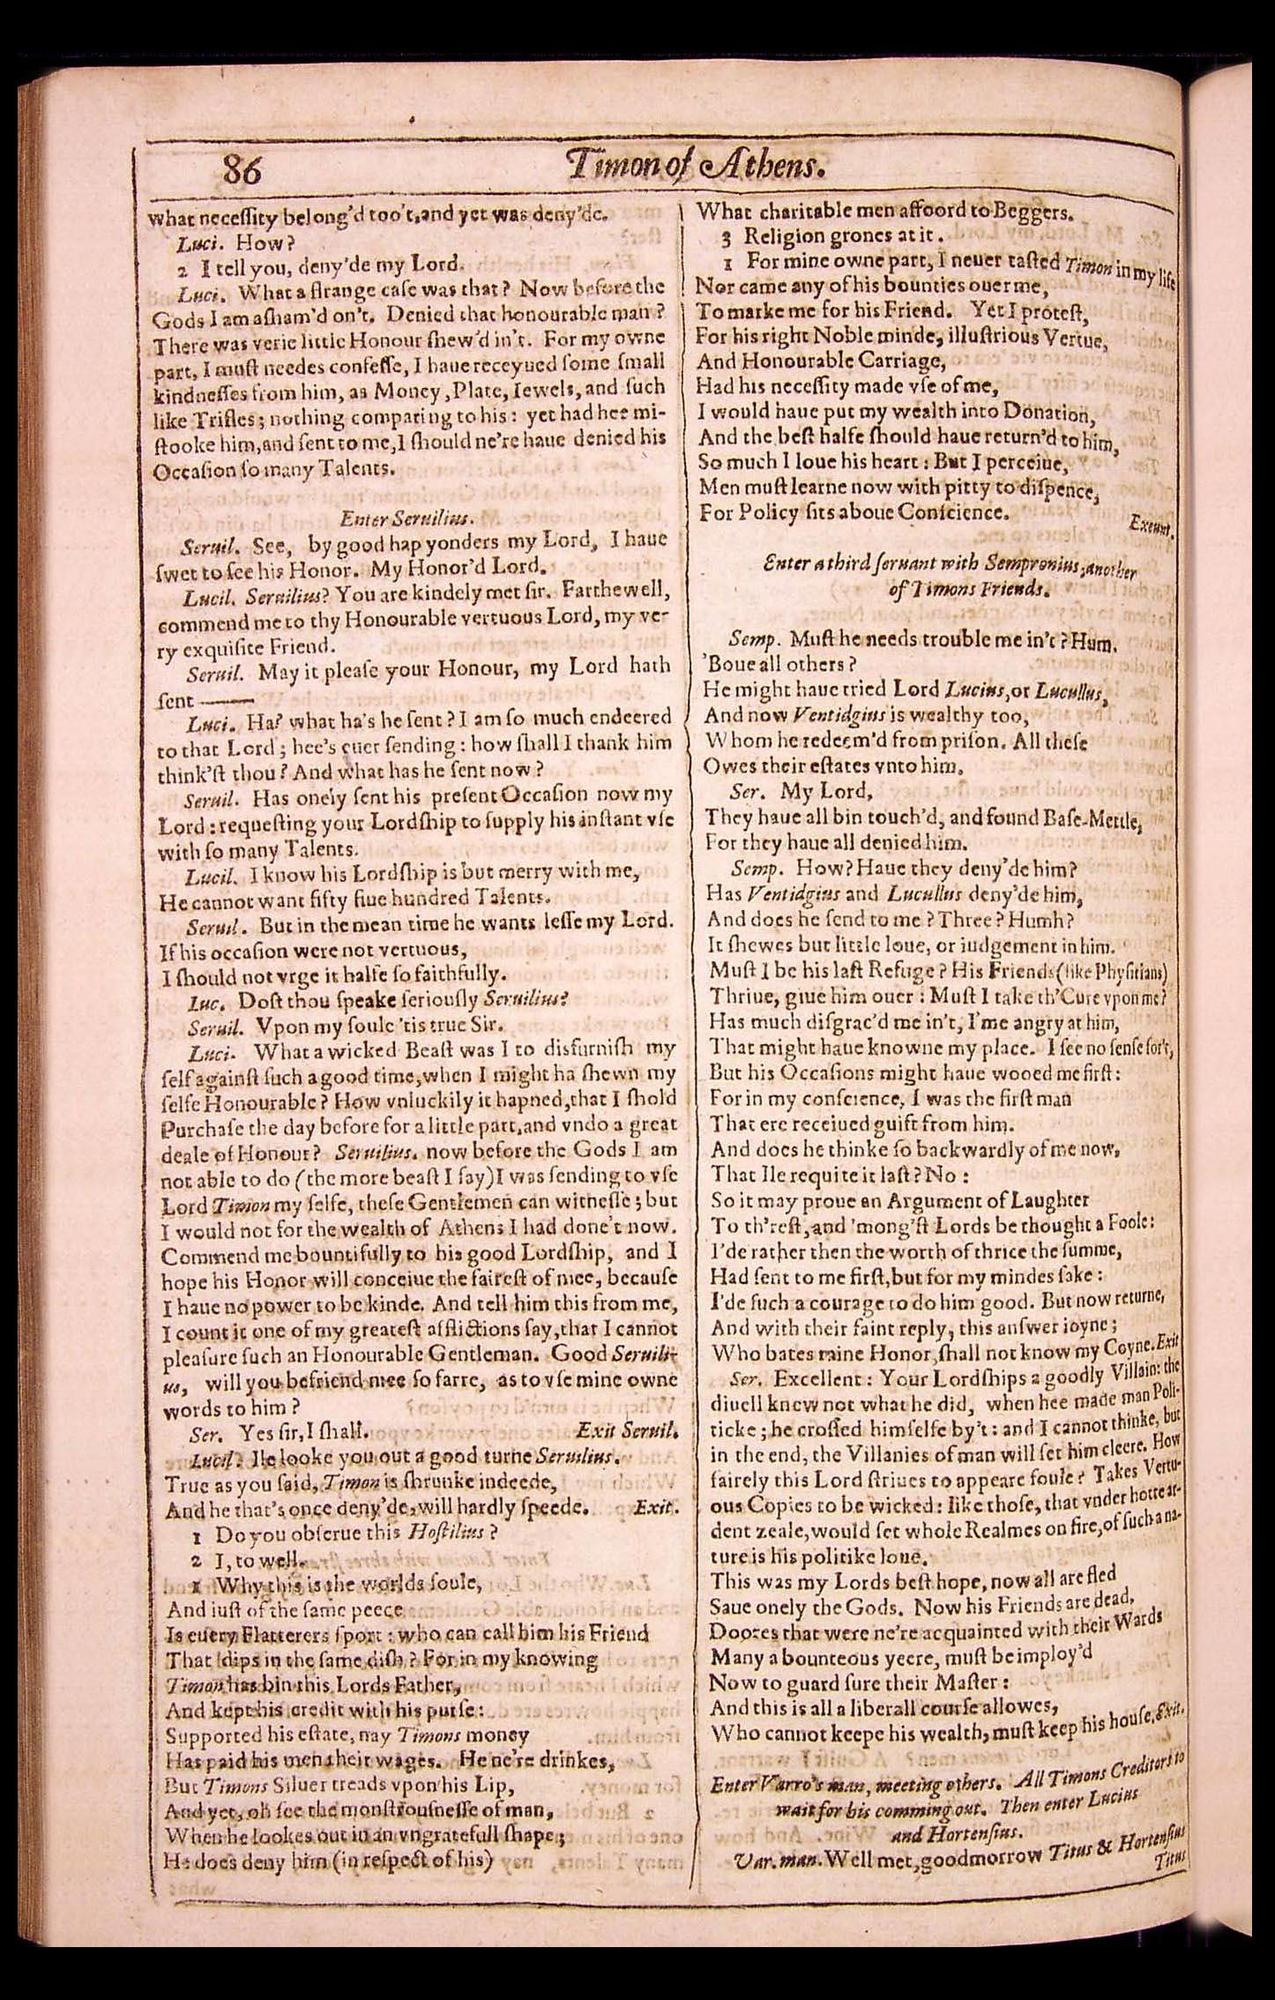 86
Timon of Athens.
what neceſſity belong'd too't, and yet was deny'de.
Luci. How?
2 I tell you, deny'de my Lord.
Luci. What a ſtrange caſe was that? Now before the
Gods I am aſham'd on't. Denied that honourable man?
There was verie little Honour ſhew'd in't. For my owne
part, I muſt needes confeſſe, I haue receyued ſome ſmall
kindneſſes from him, as Money, Plate, Iewels, and ſuch
like Trifles; nothing comparing to his: yet had hee mi-
ſtooke him, and ſent to me, I ſhould ne're haue denied his
Occaſion ſo many Talents.
Enter Seruilius.
Seruil. See, by good hap yonders my Lord, I haue
ſwet to ſee his Honor. My Honor'd Lord.
Lucil. Seruilius? You are kindely met ſir. Farthewell,
commend me to thy Honourable vertuous Lord, my ve-
ry exquiſite Friend.
Seruil. May it pleaſe your Honour, my Lord hath
ſent ——
Luci. Ha? what ha's he ſent? I am ſo much endeered
to that Lord; hee's euer ſending: how ſhall I thank him
think'ſt thou? And what has he ſent now?
Seruil. Has onely ſent his preſent Occaſion now my
Lord: requeſting your Lordſhip to ſupply his inſtant vſe
with ſo many Talents.
Lucil. I know his Lordſhip is but merry with me,
He cannot want fifty fiue hundred Talents.
Seruil. But in the mean time he wants leſſe my Lord.
If his occaſion were not vertuous,
I ſhould not vrge it halfe ſo faithfully.
Luc. Doſt thou ſpeake ſeriouſly Seruilius?
Seruil. Vpon my ſoule 'tis true Sir.
Luci. What a wicked Beaſt was I to disfurniſh my
ſelf againſt ſuch a good time, when I might ha ſhewn my
ſelfe Honourable? How vnluckily it hapned, that I ſhold
Purchaſe the day before for a little part, and vndo a great
deale of Honour? Seruilius. now before the Gods I am
not able to do (the more beaſt I ſay) I was ſending to vſe
Lord Timon my ſelfe, theſe Gentlemen can witneſſe; but
I would not for the wealth of Athens I had done't now.
Commend me bountifully to his good Lordſhip, and I
hope his Honor will conceiue the faireſt of mee, becauſe
I haue no power to be kinde. And tell him this from me,
I count it one of my greateſt afflictions ſay, that I cannot
pleaſure ſuch an Honourable Gentleman. Good Seruili-
us, will you befriend mee ſo farre, as to vſe mine owne
words to him?
Ser. Yes ſir, I ſhall. Exit Seruil.
Lucil. Ile looke you out a good turne Seruilius.
True as you ſaid, Timon is ſhrunke indeede,
And he that's once deny'de, will hardly ſpeede. Exit.
1 Do you obſerue this Hoſtilius?
2 I, to well.
1 Why this is the worlds ſoule,
And iuſt of the ſame peece
Is euery Flatterers ſport: who can call him his Friend
That dips in the ſame diſh? For in my knowing
Timon has bin this Lords Father,
And kept his credit with his purſe:
Supported his eſtate, nay Timons money
Has paid his men their wages. He ne're drinkes,
But Timons Siluer treads vpon his Lip,
And yet, oh ſee the monſtrouſneſſe of man,
When he lookes out in an vngratefull ſhape;
He does deny him (in reſpect of his)
What charitable men affoord to Beggers.
3 Religion grones at it.
1 For mine owne part, I neuer taſted Timon in my life
Nor came any of his bounties ouer me,
To marke me for his Friend. Yet I proteſt,
For his right Noble minde, illuſtrious Vertue,
And Honourable Carriage,
Had his neceſſity made vſe of me,
I would haue put my wealth into Donation,
And the beſt halfe ſhould haue return'd to him,
So much I loue his heart: But I perceiue,
Men muſt learne now with pitty to diſpence,
For Policy ſits aboue Conſcience.
Exeunt.
Enter a third ſeruant with Sempronius, another
of Timons Friends.
Semp. Muſt he needs trouble me in't? Hum.
'Boue all others?
He might haue tried Lord Lucius, or Lucullus,
And now Ventidgius is wealthy too,
Whom he redeem'd from priſon. All theſe
Owes their eſtates vnto him.
Ser. My Lord,
They haue all bin touch'd, and found Baſe-Mettle,
For they haue all denied him.
Semp. How? Haue they deny'de him?
Has Ventidgius and Lucullus deny'de him,
And does he ſend to me? Three? Humh?
It ſhewes but little loue, or iudgement in him.
Muſt I be his laſt Refuge? His Friends (like Phyſitians)
Thriue, giue him ouer: Muſt I take th'Cure vpon me?
Has much diſgrac'd me in't, I'me angry at him,
That might haue knowne my place. I ſee no ſenſe for't,
But his Occaſions might haue wooed me firſt:
For in my conſcience, I was the firſt man
That ere receiued guift from him.
And does he thinke ſo backwardly of me now,
That Ile requite it laſt? No:
So it may proue an Argument of Laughter
To th'reſt, and 'mong'ſt Lords be thought a Foole:
I'de rather then the worth of thrice the ſumme,
Had ſent to me firſt, but for my mindes ſake:
I'de ſuch a courage to do him good. But now returne,
And with their faint reply, this anſwer ioyne;
Who bates mine Honor, ſhall not know my Coyne. Exit
Ser. Excellent: Your Lordſhips a goodly Villain: the
diuell knew not what he did, when hee made man Poli-
ticke; he croſſed himſelfe by't: and I cannot thinke, but
in the end, the Villanies of man will ſet him cleere. How
fairely this Lord ſtriues to appeare foule? Takes Vertu-
ous Copies to be wicked: like thoſe, that vnder hotte ar-
dent zeale, would ſet whole Realmes on fire, of ſuch a na-
ture is his politike loue.
This was my Lords beſt hope, now all are fled
Saue onely the Gods. Now his Friends are dead,
Doores that were ne're acquainted with their Wards
Many a bounteous yeere, muſt be imploy'd
Now to guard ſure their Maſter:
And this is all a liberall courſe allowes,
Who cannot keepe his wealth, muſt keep his houſe. Exit.
Enter Varro's man, meeting others. All Timons Creditors to
wait for his comming out. Then enter Lucius
and Hortenſius.
Var. man. Well met, goodmorrow Titus & Hortenſius
Titus